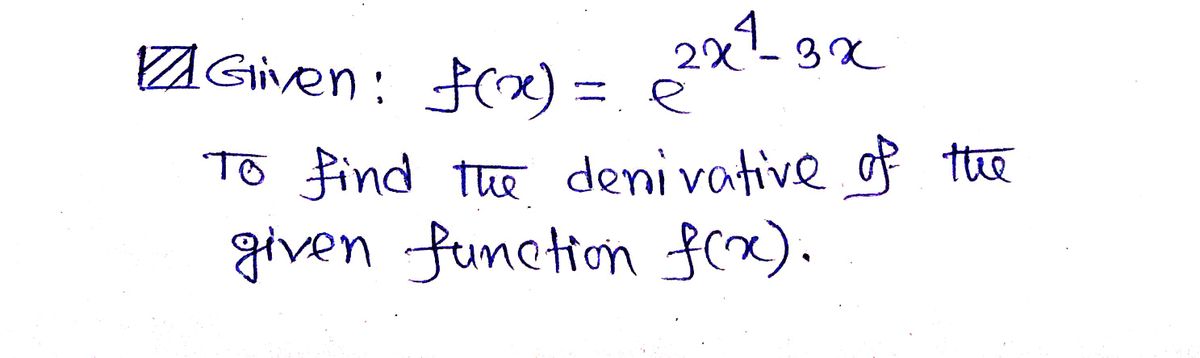 Given: f(x) = e^{2x^4-3x}
To find the derivative of the
given function f(x).